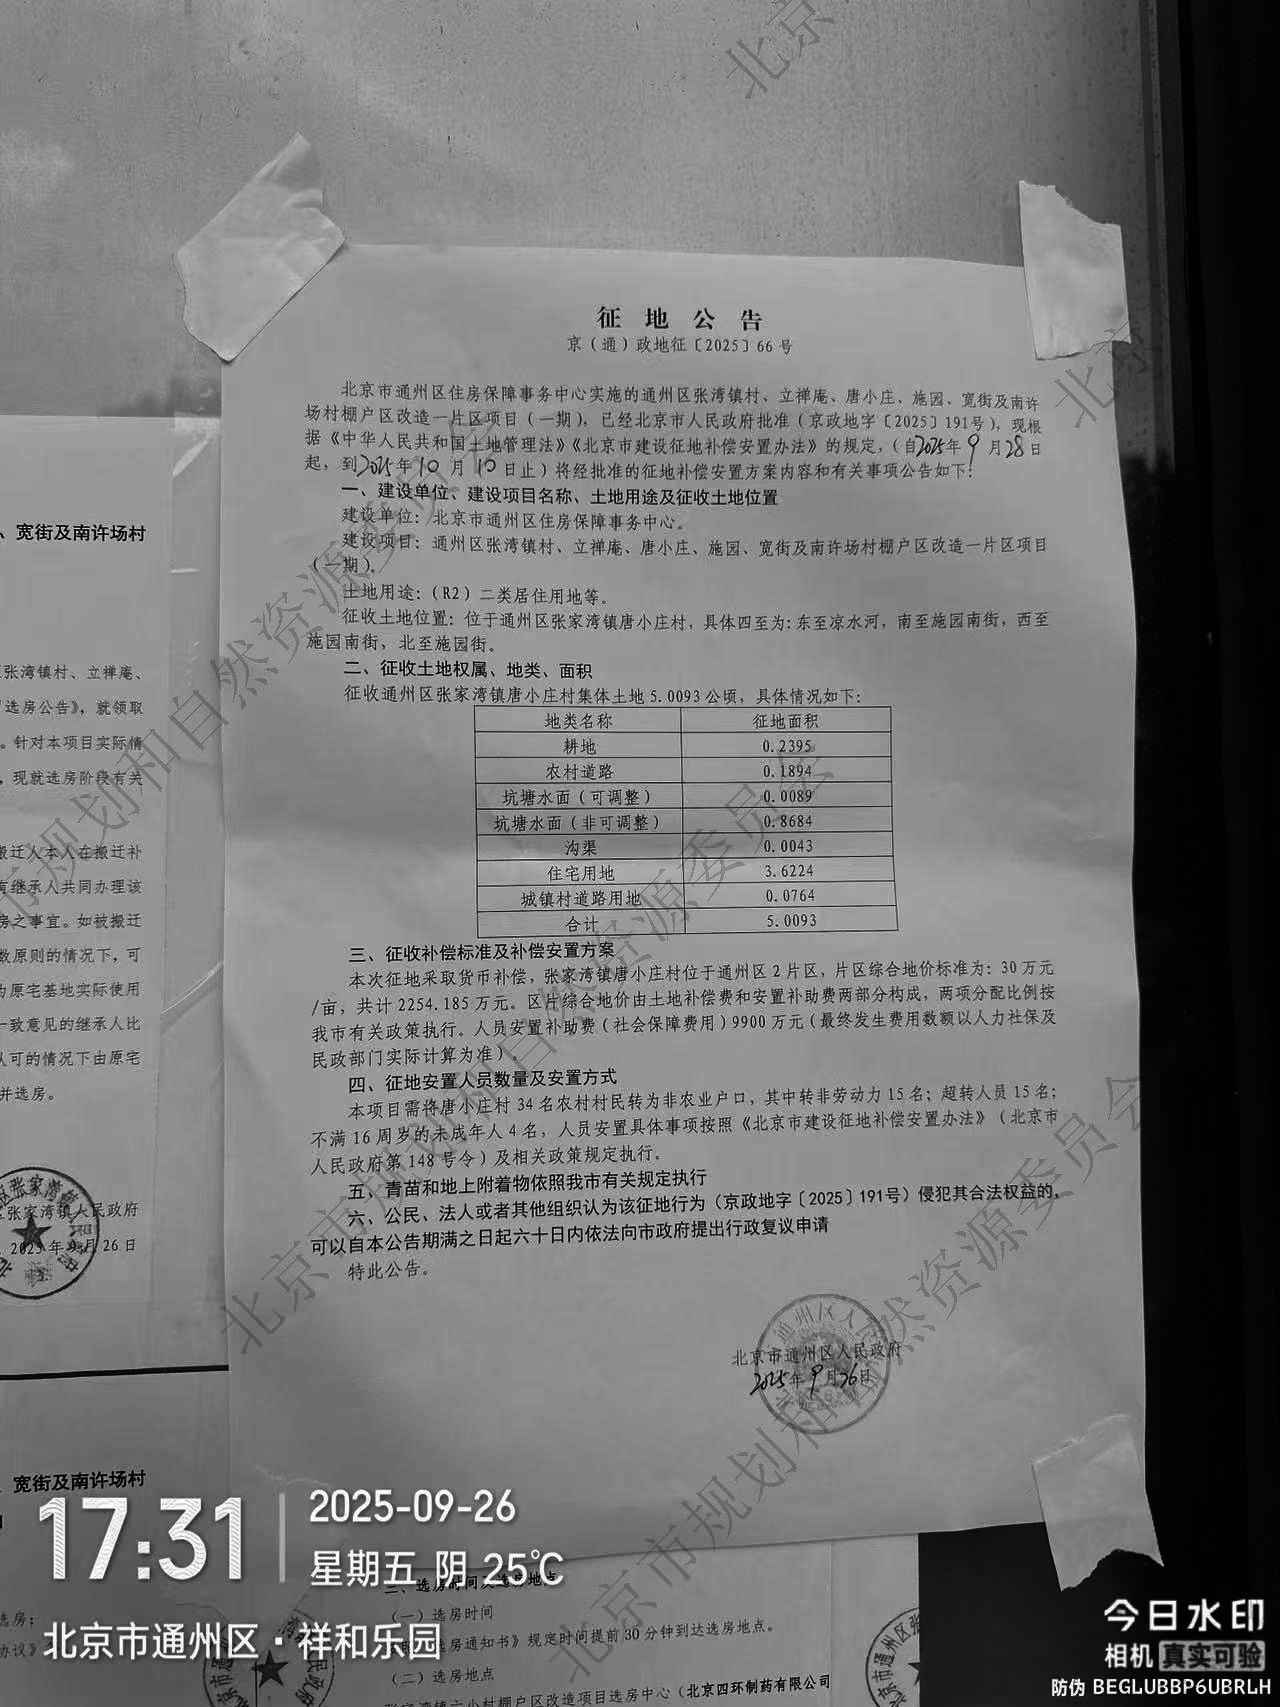 征地公告
京（通）政地征〔2025〕66号
北京市通州区住房保障事务中心实施的通州区张湾镇村、立禅庵、唐小庄、施园、宽街及南许
场村棚户区改造一片区项目（一期），已经北京市人民政府批准（京政地字〔2025〕191号），现根
据《中华人民共和国土地管理法》《北京市建设征地补偿安置办法》的规定，（自2025年9月28日
起，到2025年10月10日止）将经批准的征地补偿安置方案内容和有关事项公告如下：
一、建设单位、建设项目名称、土地用途及征收土地位置
建设单位：北京市通州区住房保障事务中心。
建设项目：通州区张湾镇村、立禅庵、唐小庄、施园、宽街及南许场村棚户区改造一片区项目
（一期）。
土地用途：（R2）二类居住用地等。
征收土地位置：位于通州区张家湾镇唐小庄村，具体四至为：东至凉水河，南至施园南街，西至
施园南街，北至施园街。
二、征收土地权属、地类、面积
征收通州区张家湾镇唐小庄村集体土地5.0093公顷，具体情况如下：
地类名称 征地面积
耕地 0.2395
农村道路 0.1894
坑塘水面（可调整） 0.0089
坑塘水面（非可调整） 0.8684
沟渠 0.0043
住宅用地 3.6224
城镇村道路用地 0.0764
合计 5.0093
三、征收补偿标准及补偿安置方案
本次征地采取货币补偿，张家湾镇唐小庄村位于通州区2片区，片区综合地价标准为：30万元
/亩，共计2254.185万元。区片综合地价由土地补偿费和安置补助费两部分构成，两项分配比例按
我市有关政策执行。人员安置补助费（社会保障费用）9900万元（最终发生费用数额以人力社保及
民政部门实际计算为准）。
四、征地安置人员数量及安置方式
本项目需将唐小庄村34名农村村民转为非农业户口，其中转非劳动力15名；超转人员15名；
不满16周岁的未成年人4名，人员安置具体事项按照《北京市建设征地补偿安置办法》（北京市
人民政府第148号令）及相关政策规定执行。
五、青苗和地上附着物依照我市有关规定执行
六、公民、法人或者其他组织认为该征地行为（京政地字〔2025〕191号）侵犯其合法权益的，
可以自本公告期满之日起六十日内依法向市政府提出行政复议申请
特此公告。
北京市通州区人民政府
2025年9月26日
、宽街及南许场村
张湾镇村、立禅庵、
选房公告》，就领取
。针对本项目实际情
，现就选房阶段有关
搬迁人本人在搬迁补
有继承人共同办理该
房之事宜。如被搬迁
数原则的情况下，可
为原宅基地实际使用
一致意见的继承人比
认可的情况下由原宅
并选房。
区张家湾镇人民政府
2025年9月26日
、宽街及南许场村
选房；
协议》
三、选房时间及选房地点
（一）选房时间
选房通知书》规定时间提前30分钟到达选房地点。
（二）选房地点
张家湾镇六小村棚户区改造项目选房中心（北京四环制药有限公司
北京市规划和自然资源委员会
北京市规划和自然资源委员会
北京市规划和自然资源委员会
17:31
2025-09-26
星期五 阴 25℃
北京市通州区·祥和乐园
今日水印
相机 真实可验
防伪 BEGLUBBP6UBRLH